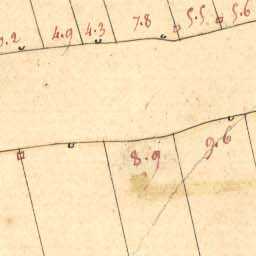 4.9 4.3 7.8 5.5 5.6
8.9 9.6